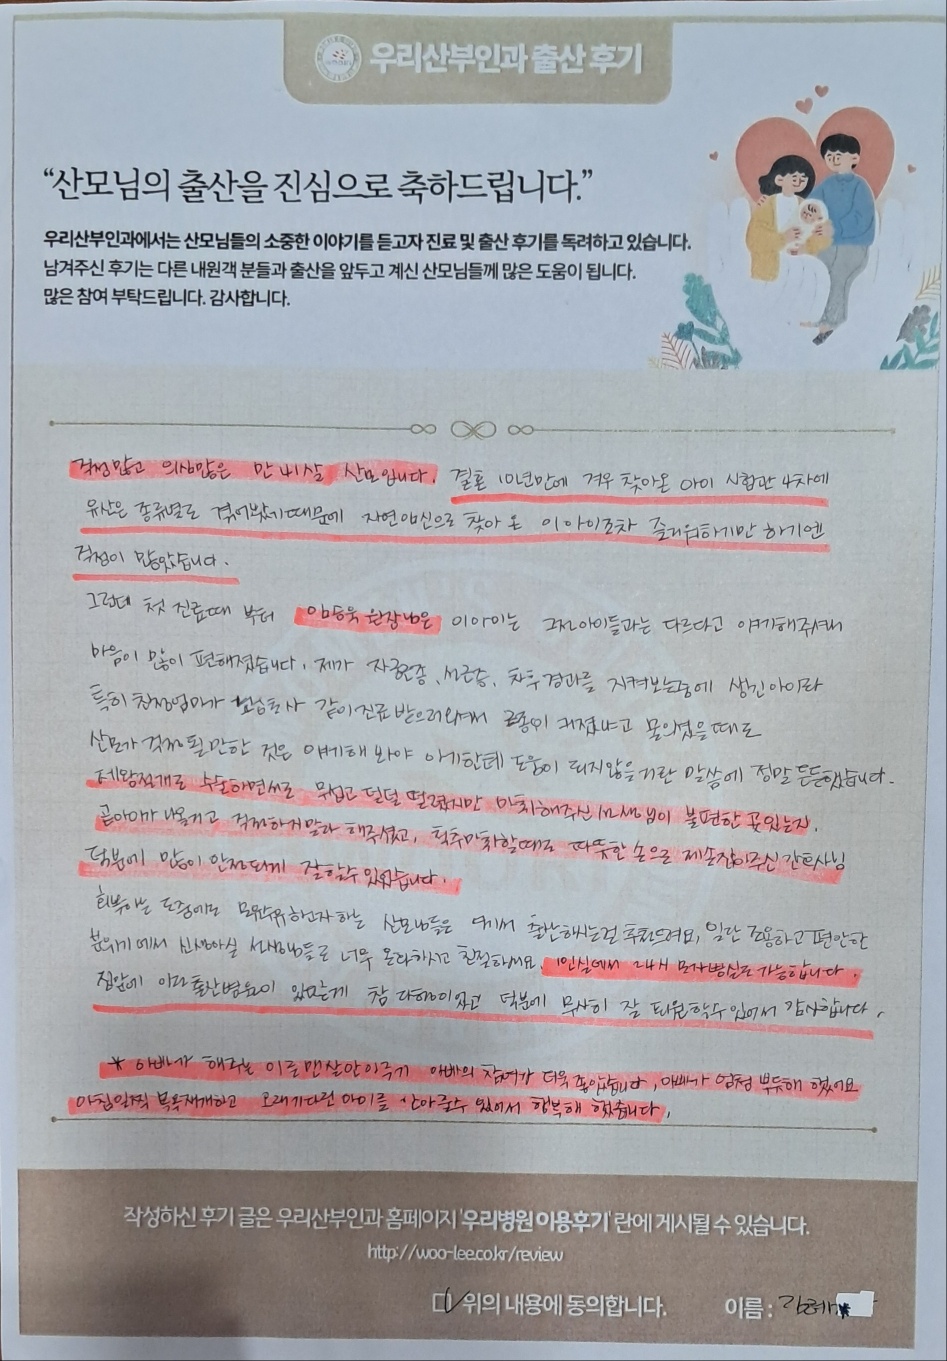 우리산부인과 출산 후기
“산모님의 출산을 진심으로 축하드립니다.”
우리산부인과에서는 산모님들의 소중한 이야기를 듣고자 진료 및 출산 후기를 독려하고 있습니다.
남겨주신 후기는 다른 내원객 분들과 출산을 앞두고 계신 산모님들께 많은 도움이 됩니다.
많은 참여 부탁드립니다. 감사합니다.
걱정많고 의심많은 만 41살 산모입니다. 결혼 10년만에 겨우 찾아온 아이 시험관 4차에
유산은 종류별로 겪어봤기때문에 자연임신으로 찾아온 이 아이조차 즐거워하기만 하기엔
걱정이 많았습니다.
그런데 첫 진료때 부터 임동욱 원장님은 이아이는 그전아이들과는 다르다고 얘기해주셔서
마음이 많이 편해졌습니다. 제가 자궁선근증, 차후경과를 지켜보는중에 생긴아이라
특히 친정엄마가 같이진료 받으러와서 근종이 커졌냐고 물으셨을때도
산모가 걱정될만한 것은 얘기해 봐야 아기한테 도움이 되지않을거란 말씀에 정말 든든했습니다.
제왕절개로 수술하면서도 무섭고 덜덜 떨렸지만 마취해주신 선생님이 불편한 곳있는지,
곧아이가 나올거고 걱정하지말라 해주셨고, 척추마취할때도 따뜻한 손으로 제손잡아주신 간호사님
덕분에 많이 안정되게 잘할수있었습니다.
회복하는 도중에도 모유수유하고자하는 산모님들은 여기서 출산하시는걸 추천드려요, 일단 조용하고 편안한
분위기에서 신생아실 선생님들도 너무 온화하시고 친절하세요. 1인실에서 24시 모자병실도 가능합니다.
집앞에 이런 출산병원이 있다는게 참 다행이었고 덕분에 무사히 잘 퇴원할수있어서 감사합니다.
* 아빠가 해주는 이름맨살안아주기 아빠의 참여가 더욱 좋았습니다, 아빠가 엄청 뿌듯해 했어요
아침일찍 복용제개하고 오래기다린 아이를 안아줄수 있어서 행복해 했습니다.
작성하신 후기 글은 우리산부인과 홈페이지 '우리병원 이용후기' 란에 게시될 수 있습니다.
http://woo-lee.co.kr/review
위의 내용에 동의합니다. 이름 : 김혜